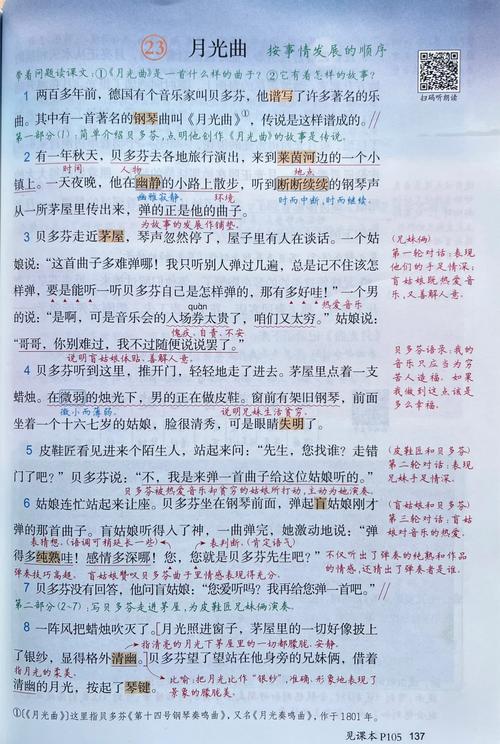 23 月光曲 按事情发展的顺序
扫码听朗读
带着问题读课文：①《月光曲》是一首什么样的曲子？②它有着怎样的故事？
1 两百多年前，德国有个音乐家叫贝多芬，他谱写了许多著名的乐
曲。其中有一首著名的钢琴曲叫《月光曲》①，传说是这样谱成的。//
第一部分(1)：简单介绍贝多芬，点明他创作《月光曲》的故事是传说。
2 有一年秋天，贝多芬去各地旅行演出，来到莱茵河边的一个小
时间 人物 地点
镇上。一天夜晚，他在幽静的小路上散步，听到断断续续的钢琴声
幽雅寂静。 环境 时而中断，时而继续。
从一所茅屋里传出来，弹的正是他的曲子。
为故事的发展作铺垫。
3 贝多芬走近茅屋，琴声忽然停了，屋子里有人在谈话。一个姑
娘说：“这首曲子多难弹哪！我只听别人弹过几遍，总是记不住该怎
样弹，要是能听一听贝多芬自己是怎样弹的，那有多好哇！”一个男
热爱音乐
quàn
的说：“是啊，可是音乐会的入场券太贵了，咱们又太穷。”姑娘说：
愧疚、自责、不安
“哥哥，你别难过，我不过随便说说罢了。”
说明盲姑娘体贴、善解人意。
(兄妹俩)
第一轮对话：表现
他们的手足情深；
盲姑娘既热爱音
乐，又善解人意。
4 贝多芬听到这里，推开门，轻轻地走了进去。茅屋里点着一支
蜡烛。在微弱的烛光下，男的正在做皮鞋。窗前有架旧钢琴，前面
微小而薄弱。 说明兄妹生活贫穷。
坐着一个十六七岁的姑娘，脸很清秀，可是眼睛失明了。
贝多芬语录：我的
音乐只应当为穷
苦人造福。如果
我做到这点该是
多么幸福。
5 皮鞋匠看见进来个陌生人，站起来问：“先生，您找谁？走错
门了吧？”贝多芬说：“不，我是来弹一首曲子给这位姑娘听的。”
贝多芬被热爱音乐却贫穷的姑娘所打动，主动为她演奏。
(皮鞋匠和贝多芬)
第二轮对话：表现
兄妹手足情深。
6 姑娘连忙站起来让座。贝多芬坐在钢琴前面，弹起盲姑娘刚才
弹的那首曲子。盲姑娘听得入了神，一曲弹完，她激动地说：“弹
表猜想。(语调可稍延长一些) 表判断。(肯定语气)
得多纯熟哇！感情多深哪！您，您就是贝多芬先生吧？”
弹奏技巧高超。 盲姑娘赞叹贝多芬曲子里情感表现得充分。
不仅听出了弹奏的纯熟和作品
的情感，还猜出了弹奏者是谁。
(姑娘和贝多芬)
第三轮对话：盲姑
娘对音乐的热爱。
7 贝多芬没有回答，他问盲姑娘：“您爱听吗？我再给您弹一首吧。”//
第二部分(2~7)：写贝多芬走进茅屋，为皮鞋匠兄妹俩演奏。
8 一阵风把蜡烛吹灭了。月光照进窗子，茅屋里的一切好像披上
指清亮的月光下茅屋里的一切都朦胧、安静。
了银纱，显得格外清幽。贝多芬望了望站在他身旁的兄妹俩，借着
指月光的柔美。
清幽的月光，按起了琴键。
比喻：把月光比作“银纱”，准确、形象地表现了
景象的朦胧美。
①[《月光曲》]这里指贝多芬《第十四号钢琴奏鸣曲》，又名《月光奏鸣曲》，作于1801年。
见课本P105 137